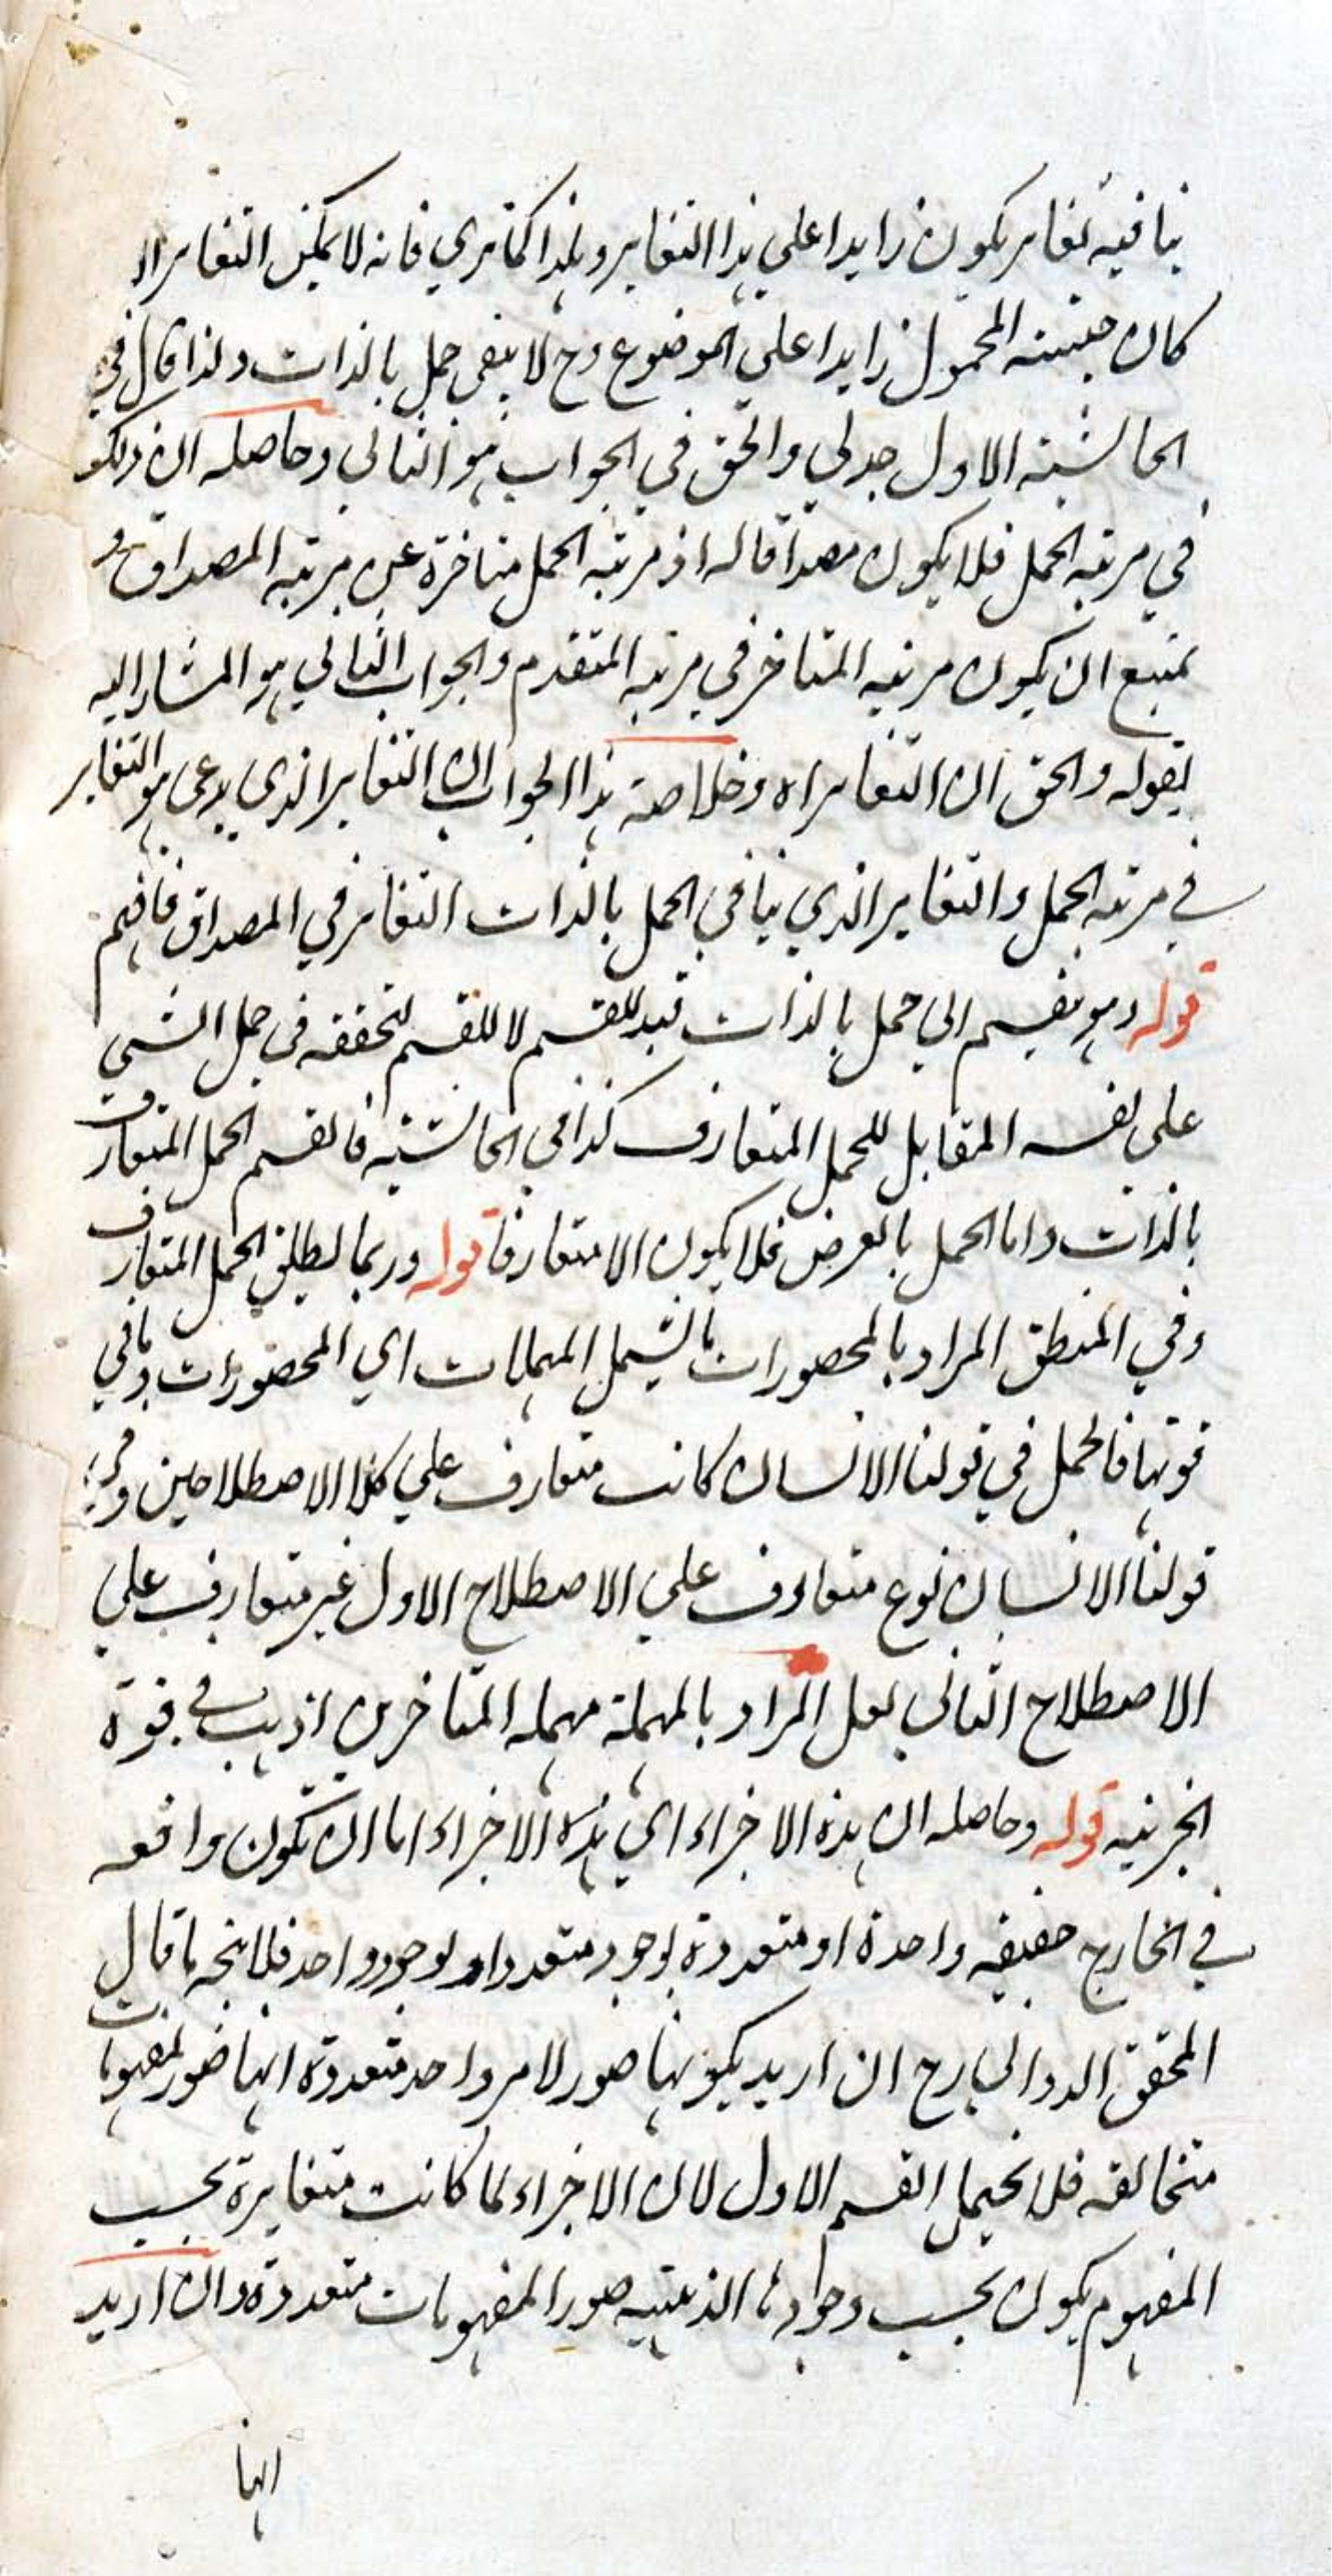 ينافيه تغاير يكون زايدا علي هذا التغاير وهذا كما تري فانه لا يمكن التغاير الا
كان حيثية المحمول زايدا علي الموضوع وح لا يبقي حمل بالذات ولذا قال في
الحاشية الاول جدلي والحق في الجواب هو الثاني وحاصله ان ذلك
في مرتبة الحمل فلا يكون مصداقا له اذ مرتبة الحمل متاخرة عن مرتبة المصداق و
يمتنع ان يكون مرتبة المتاخر في مرتبة المتقدم والجواب الثاني هو المشار اليه
بقوله والحق ان التغاير اه وخلاصة هذا الجواب ان التغاير الذي يدعي هو التغاير
في مرتبة الحمل والتغاير الذي ينافي الحمل بالذات التغاير في المصداق فافهم
قوله وهو ينقسم الي حمل بالذات قيد للقسم لا للمقسم لتحققه في حمل الشي
علي نفسه المقابل للحمل المتعارف كذا في الحاشية فالقسم الحمل المتعارف
بالذات واما الحمل بالعرض فلا يكون الا متعارفا قوله وربما يطلق الحمل المتعارف
وفي المنطق المراد بالمحصورات ما يشمل المهملات اي المحصورات وما في
قوتها فالحمل في قولنا الانسان كاتب متعارف علي كلا الاصطلاحين وفي
قولنا الانسان نوع متعارف علي الاصطلاح الاول غير متعارف علي
الاصطلاح الثاني لعل المراد بالمهملة مهملة المتاخرين اذ هي في قوة
الجزئية قوله وحاصله ان هذه الاجزاء اي هذه الاجزاء اما ان تكون واقعه
في الخارج حقيقه واحدة او متعددة بوجود متعدد او بوجود واحد فلا يتجه ما قال
المحقق الدواني رح ان اريد بكونها صور لامر واحد متعددة انها صور لمفهومات
متخالفه فلا يحتمل القسم الاول لان الاجزاء لما كانت متغايرة بحسب
المفهوم يكون بحسب وجودها الذهنية صور المفهومات متعددة وان اريد
انها